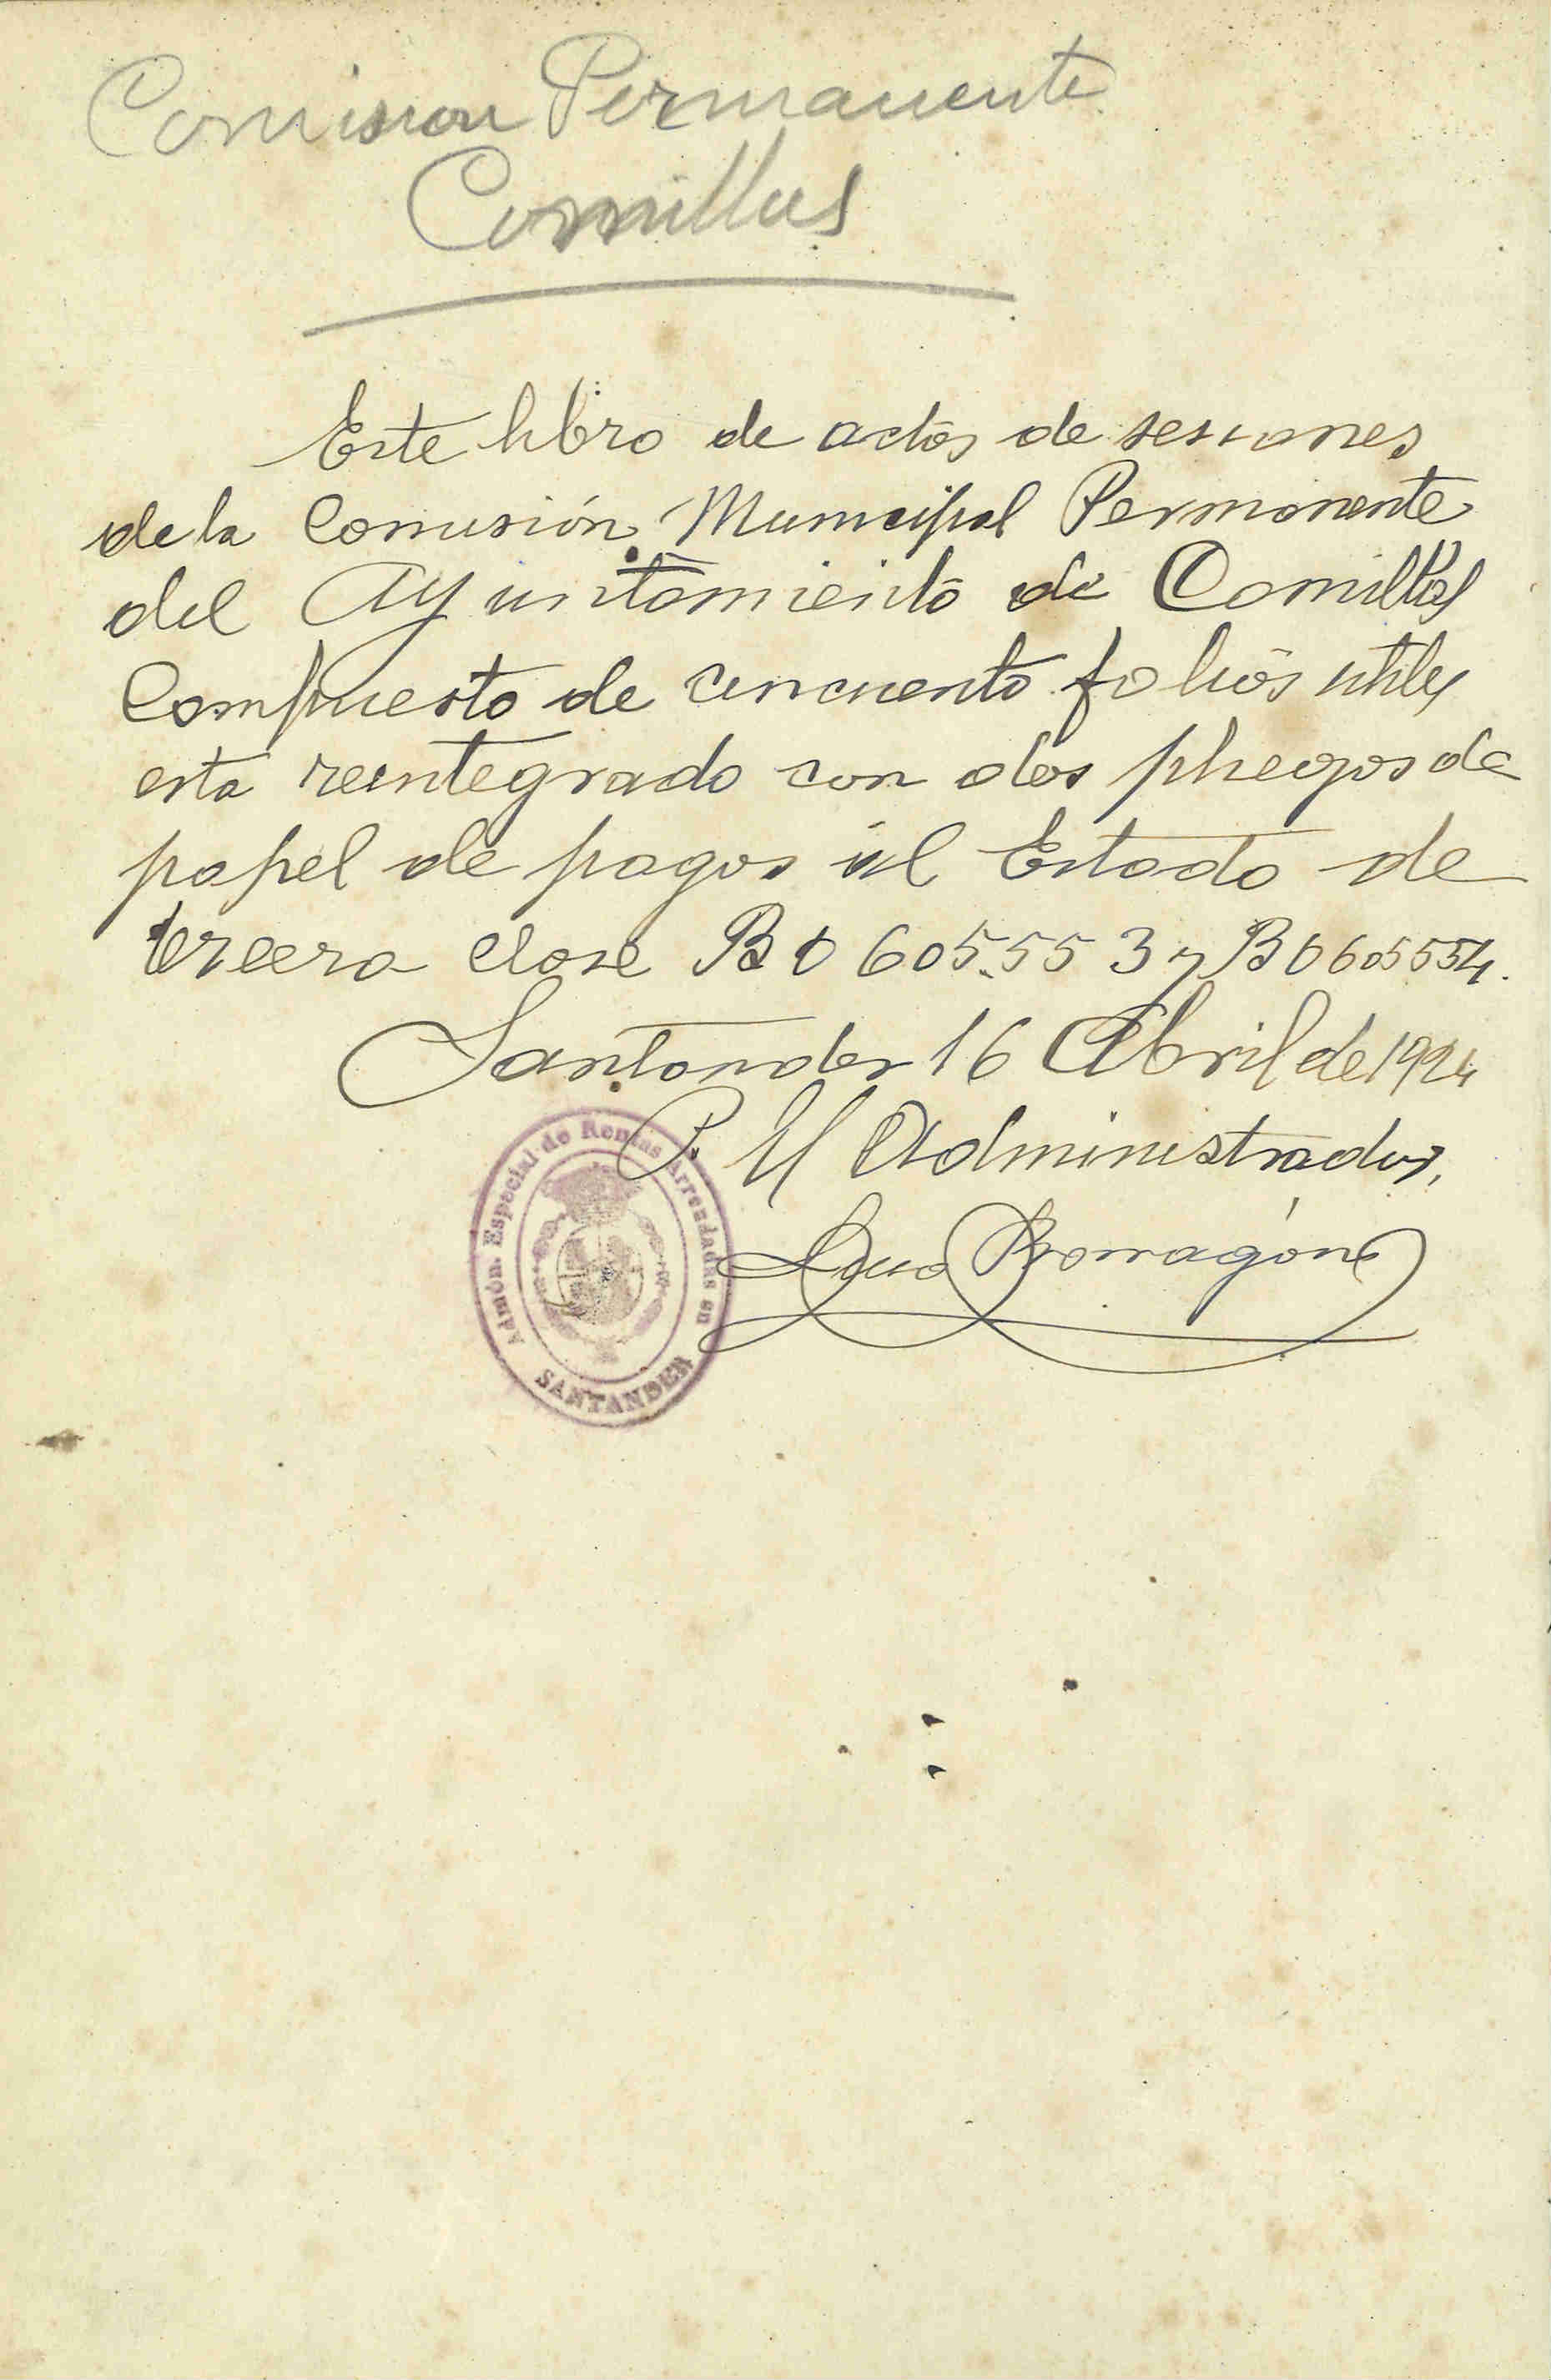 Comision Permanente
Comillas
Este libro de actas de sesiones
de la Comisión Municipal Permanente
del Ayuntamiento de Comillas
Compuesto de cincuenta folios utiles
esta reintegrado con dos pliegos de
papel de pagos al Estado de
tercera clase B 0605.553 y B 0605554.
Santander 16 Abril de 1924
P. El Administrador,
Borragón
Admón. Especial de Rentas Arrendadas en
SANTANDER